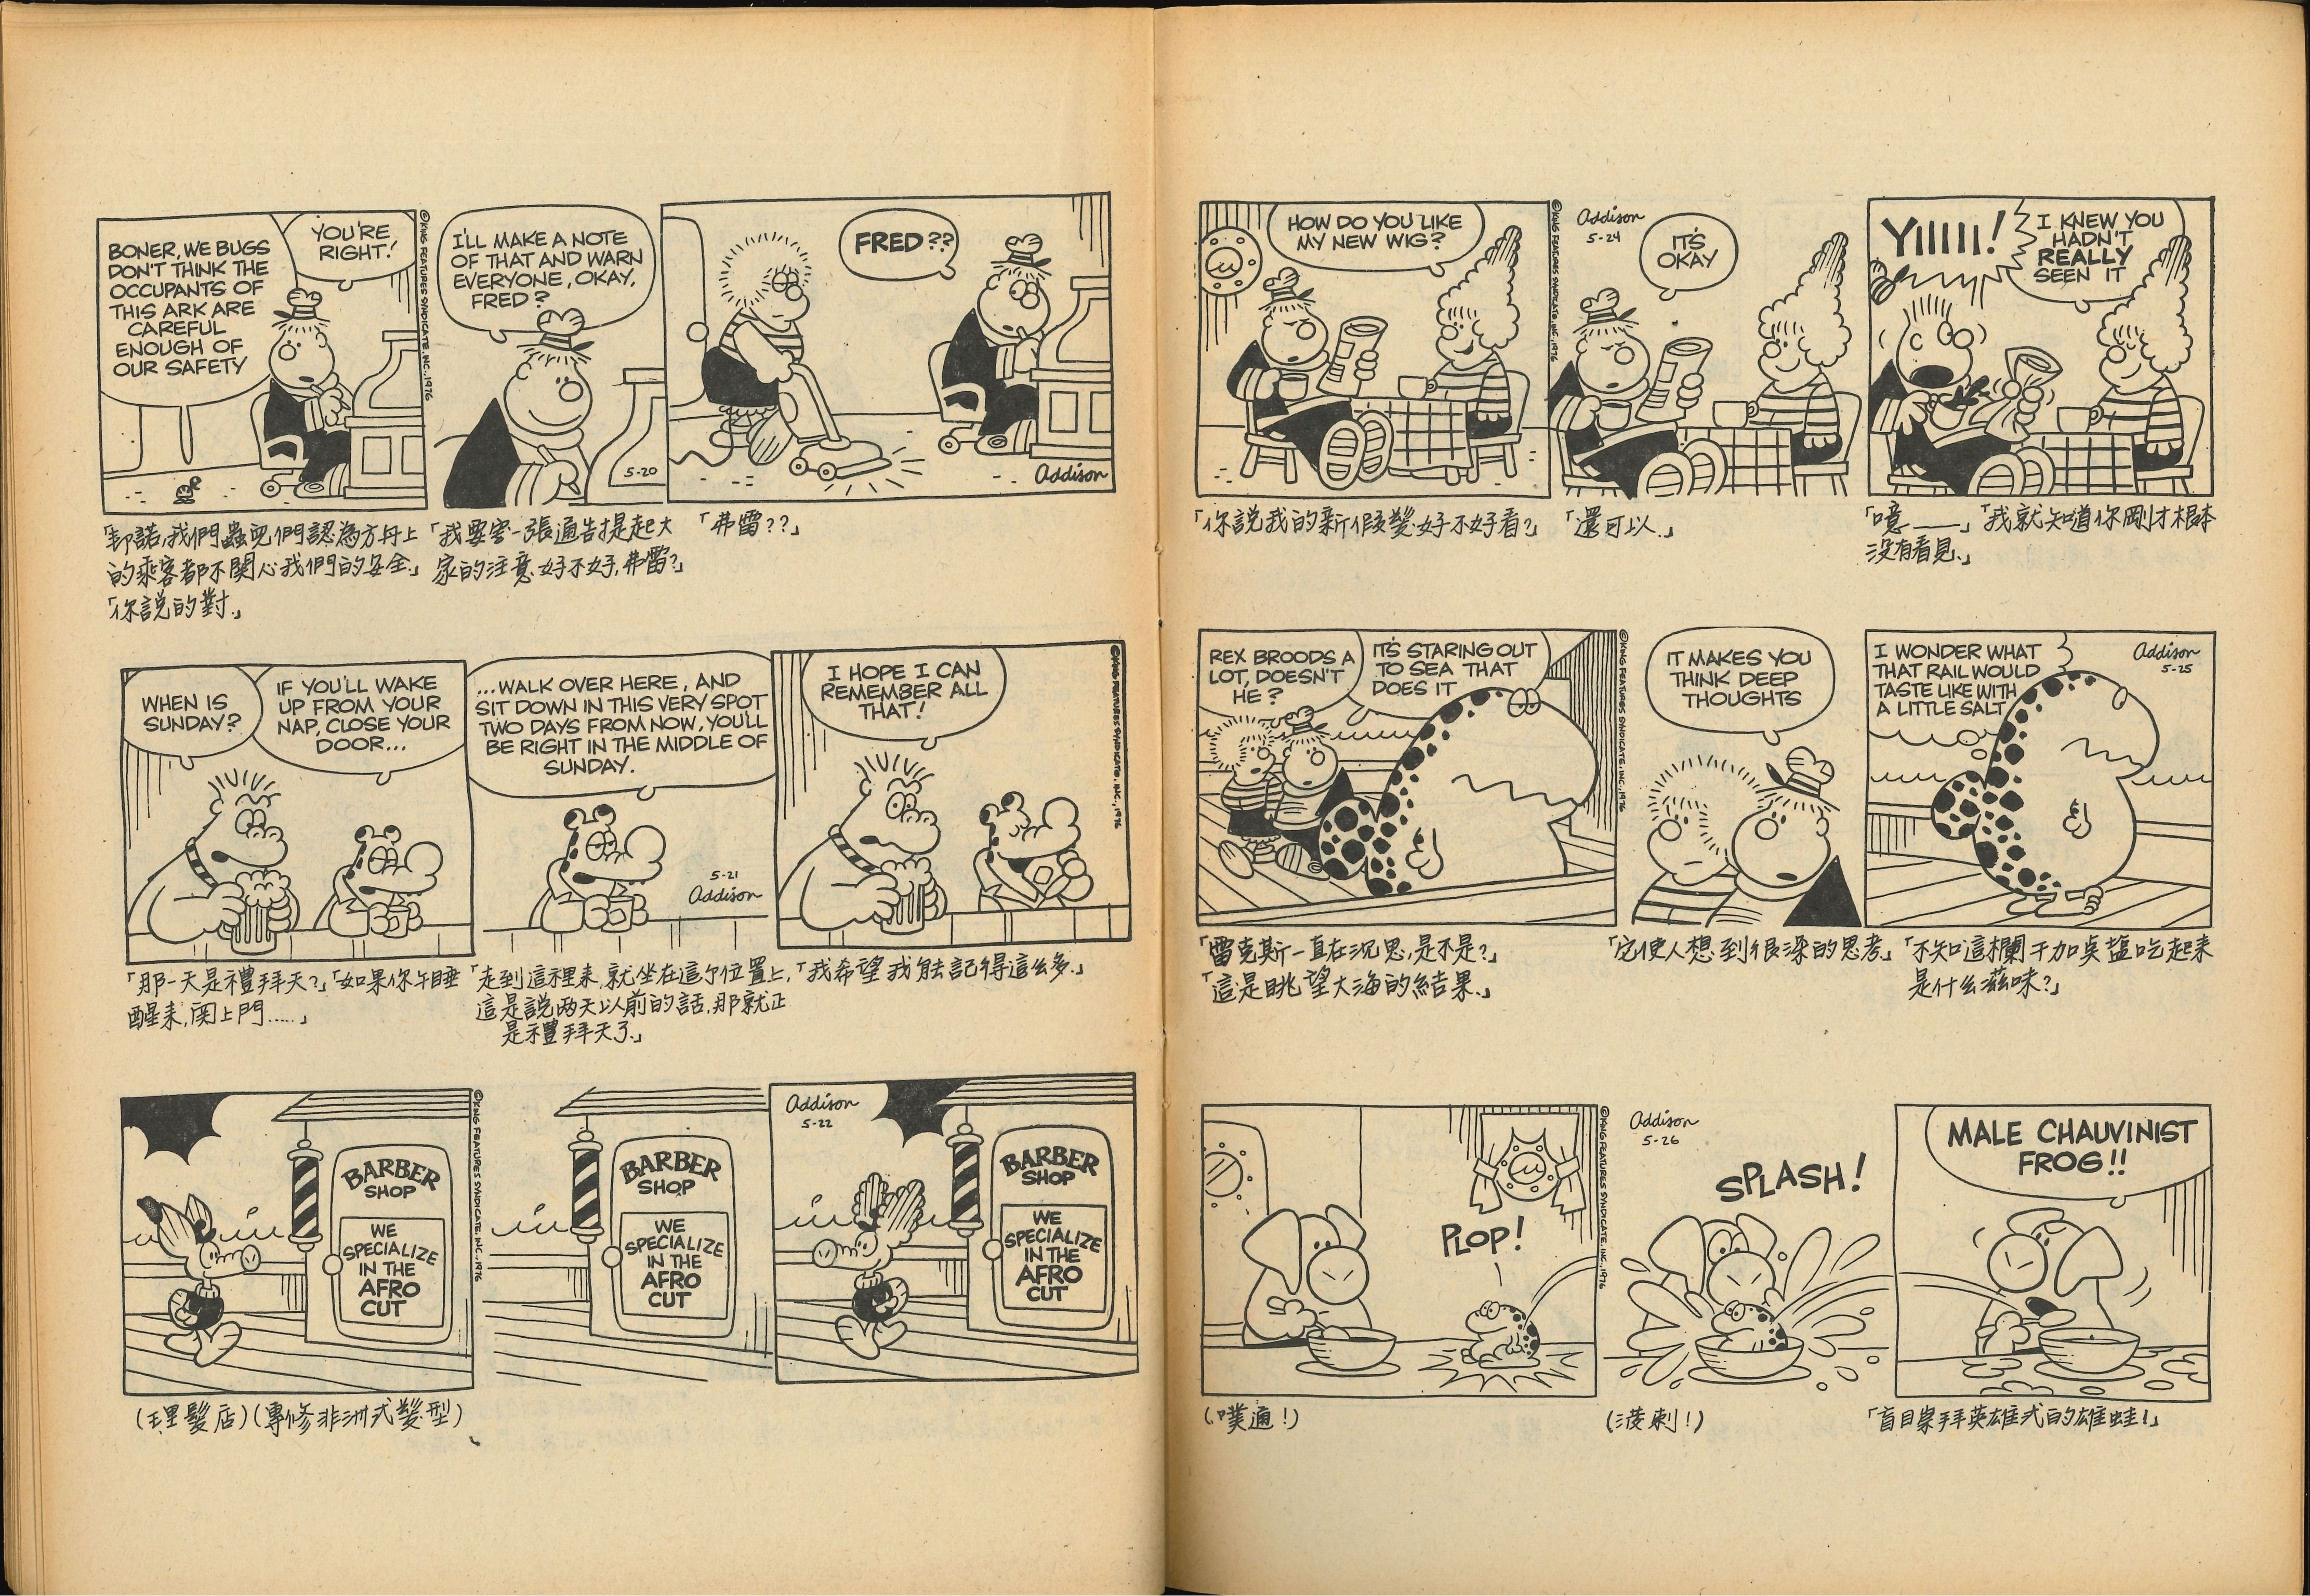 BONER, WE BUGS
DON'T THINK THE
OCCUPANTS OF
THIS ARK ARE
CAREFUL
ENOUGH OF
OUR SAFETY
YOU'RE
RIGHT!
©KING FEATURES SYNDICATE, INC., 1976
I'LL MAKE A NOTE
OF THAT AND WARN
EVERYONE, OKAY,
FRED?
5-20
FRED??
Addison
「邦諾,我們蟲兒們認為方舟上
的乘客都不関心我們的安全.」
「你說的對.」
「我要寫一張通告提起大
家的注意.好不好,弗雷?」
「弗雷??」
WHEN IS
SUNDAY?
IF YOU'LL WAKE
UP FROM YOUR
NAP, CLOSE YOUR
DOOR...
...WALK OVER HERE, AND
SIT DOWN IN THIS VERY SPOT
TWO DAYS FROM NOW, YOU'LL
BE RIGHT IN THE MIDDLE OF
SUNDAY.
5-21
Addison
I HOPE I CAN
REMEMBER ALL
THAT!
©KING FEATURES SYNDICATE, INC., 1976
「那一天是禮拜天?」「如果你午睡
醒来,関上門.....」
「走到這裡来,就坐在這个位置上,
這是說两天以前的話,那就正
是禮拜天了.」
「我希望我能記得這么多.」
BARBER
SHOP
WE
SPECIALIZE
IN THE
AFRO
CUT
©KING FEATURES SYNDICATE, INC., 1976
BARBER
SHOP
WE
SPECIALIZE
IN THE
AFRO
CUT
Addison
5-22
BARBER
SHOP
WE
SPECIALIZE
IN THE
AFRO
CUT
(理髮店)(專修非洲式髮型)
HOW DO YOU LIKE
MY NEW WIG?
©KING FEATURES SYNDICATE, INC., 1976
Addison
5-24
IT'S
OKAY
YIIIII!
I KNEW YOU
HADN'T
REALLY
SEEN IT
「你說我的新假髮好不好看?」
「還可以.」
「噫——」「我就知道你剛才根本
没有看見.」
REX BROODS A
LOT, DOESN'T
HE?
IT'S STARING OUT
TO SEA THAT
DOES IT
©KING FEATURES SYNDICATE, INC., 1976
IT MAKES YOU
THINK DEEP
THOUGHTS
I WONDER WHAT
THAT RAIL WOULD
TASTE LIKE WITH
A LITTLE SALT
Addison
5-25
「雷克斯一直在沉思,是不是?」
「這是眺望大海的結果.」
「它使人想到很深的思考.」
「不知這欄干加點盐吃起来
是什么滋味?」
PLOP!
©KING FEATURES SYNDICATE, INC., 1976
Addison
5-26
SPLASH!
MALE CHAUVINIST
FROG!!
(噗通!)
(潑剌!)
「盲目崇拜英雄式的雄蛙!」